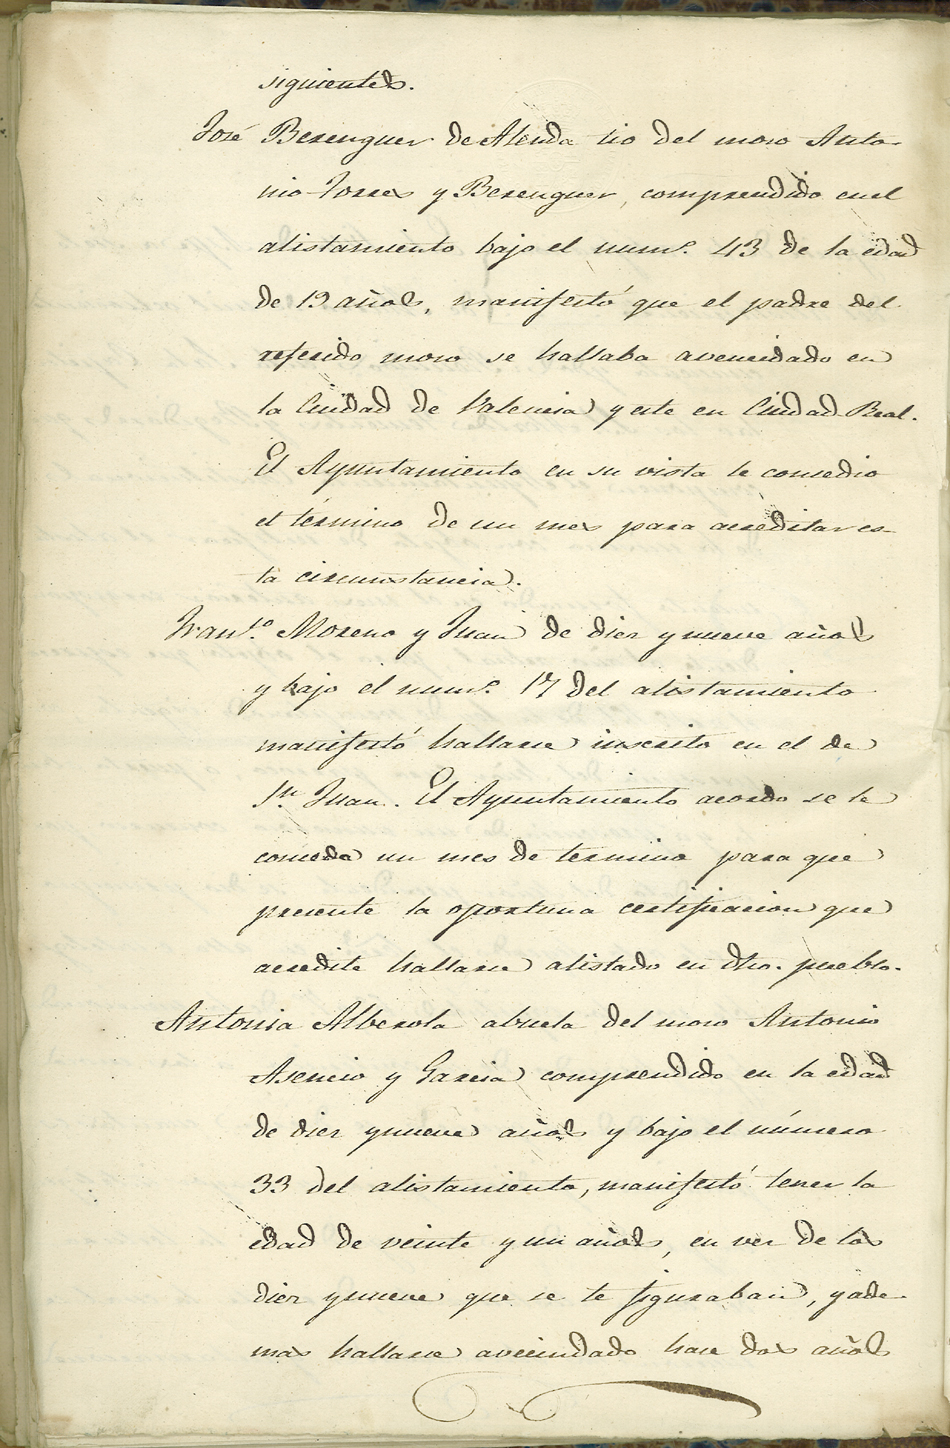 siguientes.
José Berenguer de Alenda tio del moso Anto-
nio Torres y Berenguer, comprendido en el
alistamiento bajo el num.º 43 de la edad
de 19 años, manifestó que el padre del
referido moso se hallaba avencidado en
la Ciudad de Valencia y este en Ciudad-Real.
El Ayuntamiento en su vista le consedio
el término de un mes para acreditar es-
ta circunstancia.
Fran.co Moreno y Juan de dier y nueve años
y bajo el num.º 17 del alistamiento
manifestó hallarse inscrito en el de
Sn. Juan. El Ayuntamiento acordo se le
conceda un mes de termino para que
presente la oportuna certificacion que
acredite hallarse alistado en dho. pueblo.
Antonia Alberola abuela del moso Antonio
Asencio y Garcia comprendido en la edad
de dier y nueve años y bajo el número
33 del alistamiento, manifestó tener la
edad de veinte y un años, en ver de los
dier y nueve que se le figuraban, y ade-
mas hallarse avecindado hace dos años